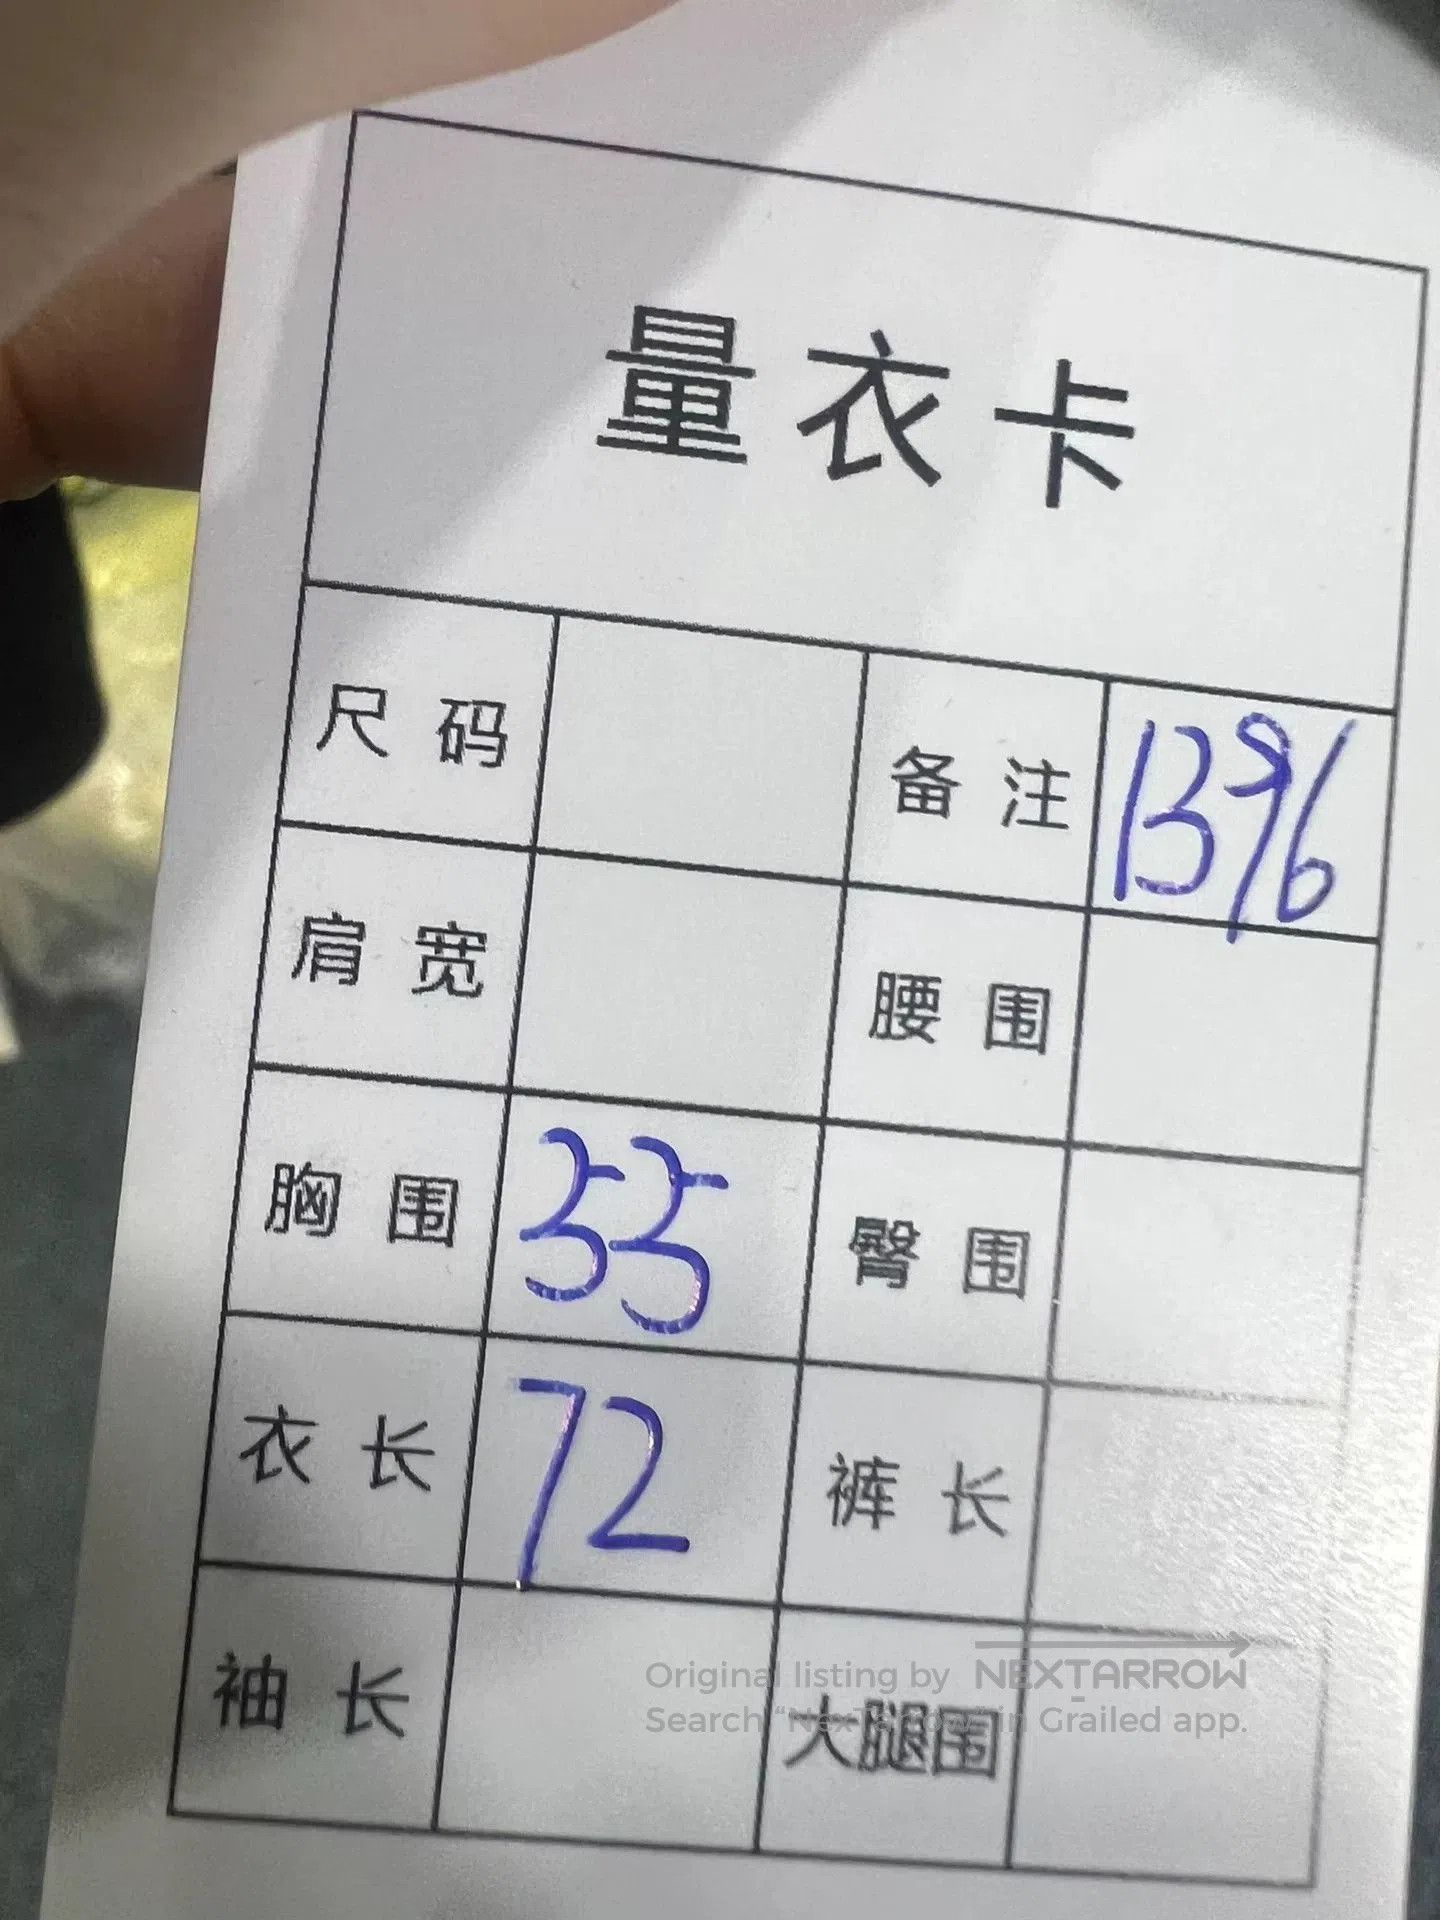 量衣卡
尺码 备注 1396
肩宽 腰围
胸围 55 臀围
衣长 72 裤长
袖长 大腿围
Original listing by NEXTARROW
Search "NexTArrow" in Grailed app.